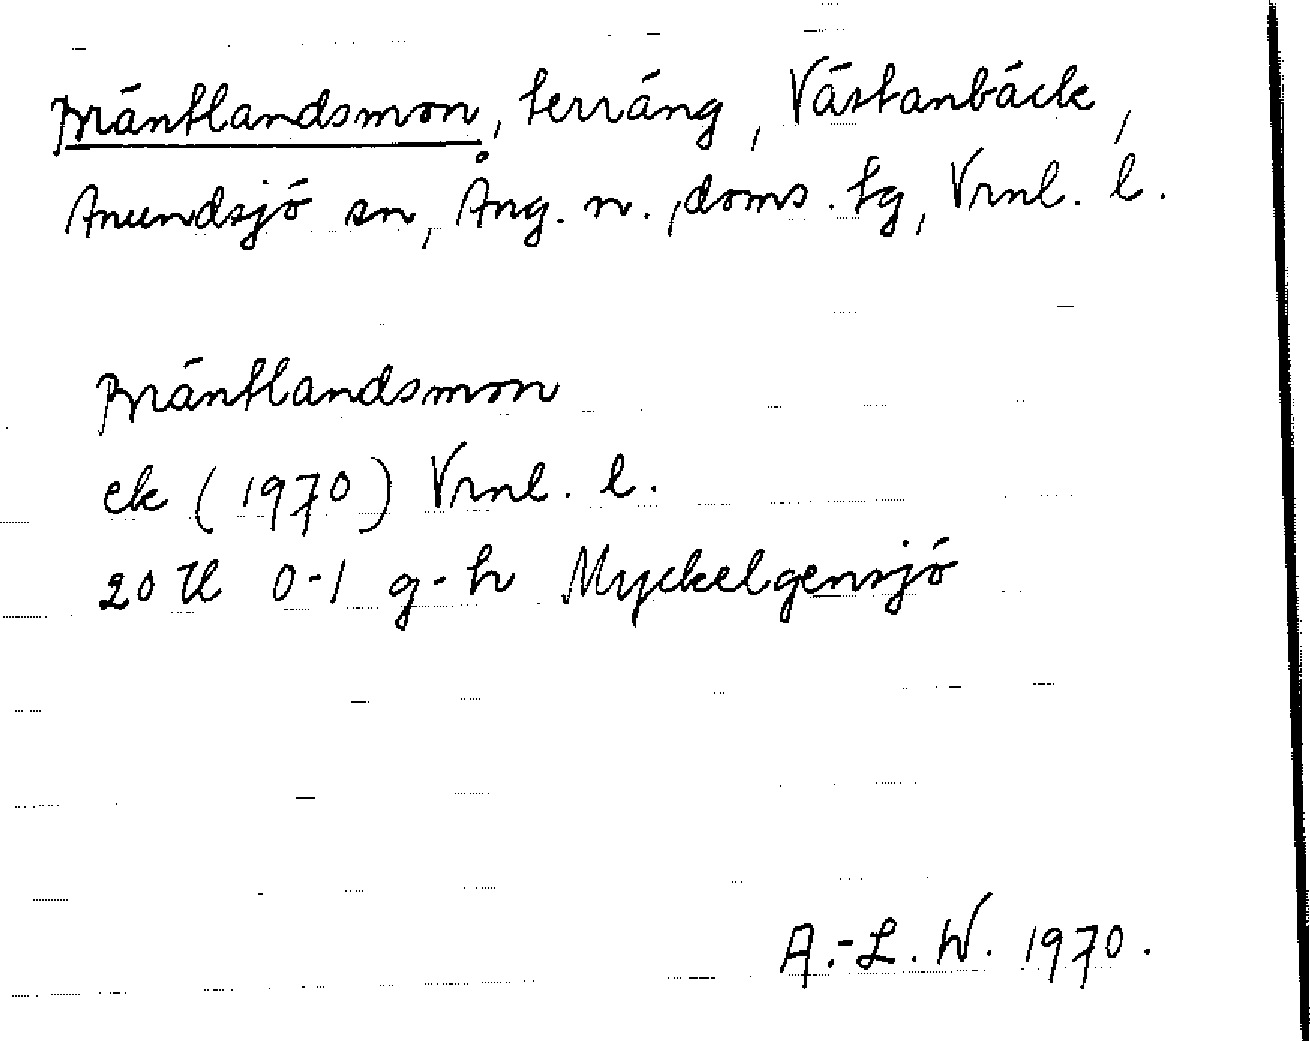 Bräntlandsmon, terräng, Västanbäck,
Anundsjö sn, Ång. n., doms. tg, Vrnl. l.
Bräntlandsmon
ek (1970) Vrnl. l.
20 H 0-1 g-h Myckelgensjö
A.-L. W. 1970.